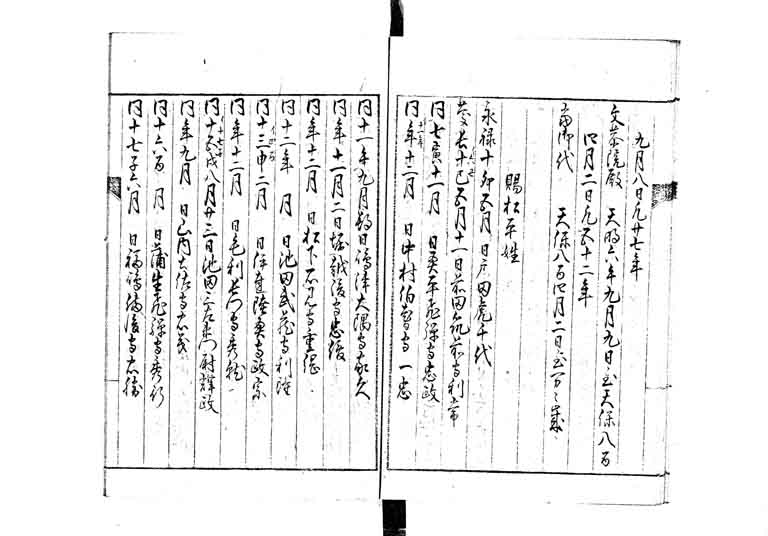 九月八日凡廿七年
文恭院殿 天明六年九月九日ゟ至天保八酉
四月二日凡五十二年
当御代 天保八酉四月二日ゟ至万々歳
賜松平姓
永禄十卯五月 日戸田虎千代
慶長十巳五月十一日前田筑前守利常
同七寅十一月 日奥平飛騨守忠政
同年十二月 日中村伯耆守一忠
同十一年九月 日嶋津大隅守家久
同年十一月二日堀越後守忠俊
同年十二月 日松下石見守重綱
同十二年 月 日池田武蔵守利隆
同十三申二月 日伊達陸奥守政宗
同年十二月 日毛利長門守秀就
同十七戌八月廿三日池田三左衛門尉輝政
同年九月 日山内土佐守忠義
同十六 月 日蒲生飛騨守秀行
同十七子六月 日福嶋備後守忠勝